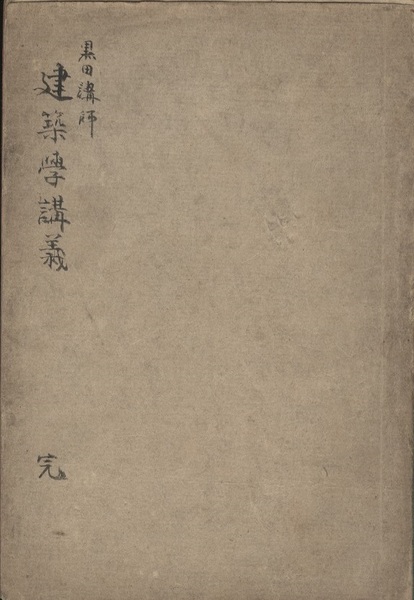 黒田講師
建築學講義
完